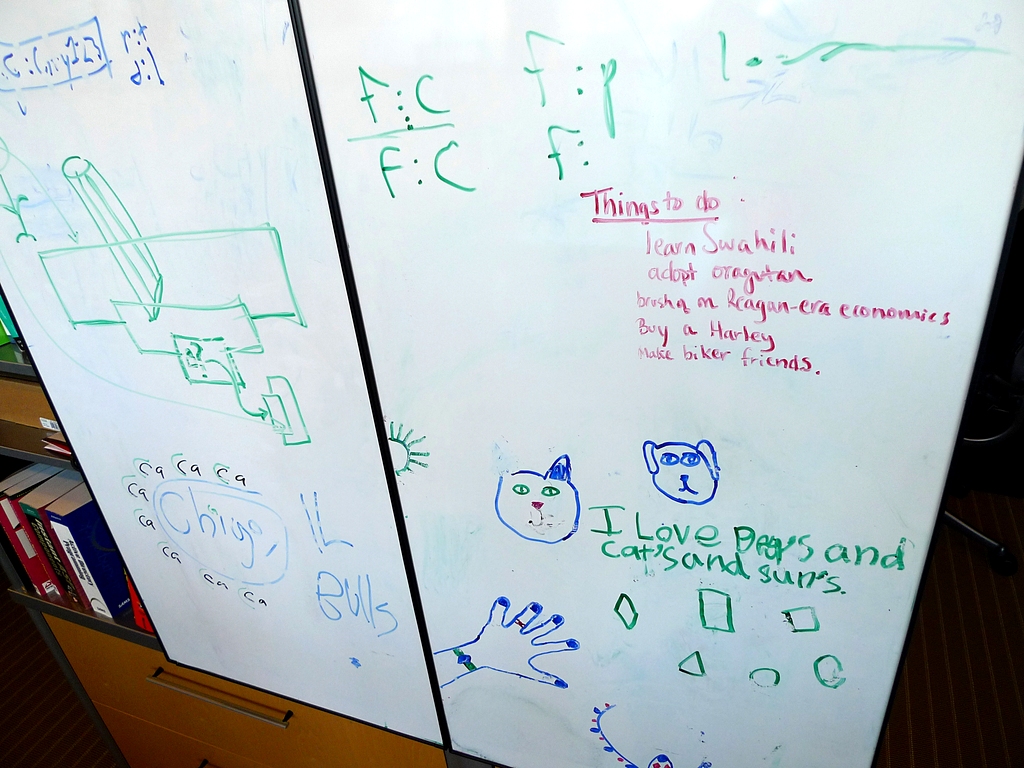 r:t
d:l
F:C
F:C
F:p
F:
Things to do
learn Swahili
adopt oragutan.
brush up on Reagan-era economics
Buy a Harley
Make biker friends.
Ca Ca Ca
Ca
Ca
Ca
Ca Ca
IL
Bulls
I Love Dogs and
cat's and sun's.